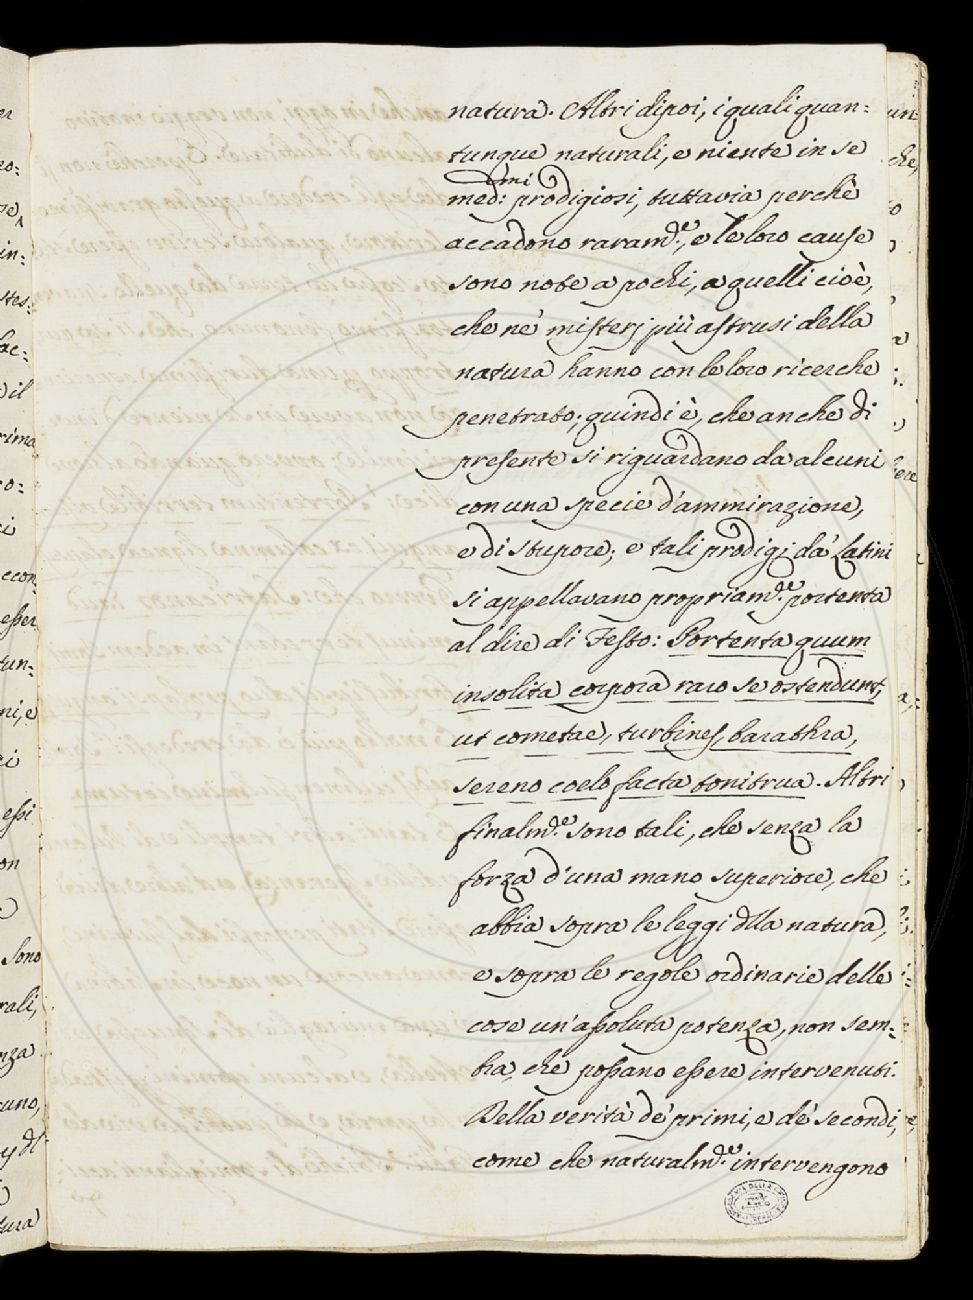 natura. Altri dipoi, i quali quan=
tunque naturali, e niente in se
med:mi prodigiosi, tuttavia perchè
accadono raram.e, e le loro cause
sono note a pochi, a quelli cioè,
che ne' misterj più astrusi della
natura hanno con le loro ricerche
penetrato; quindi è, che anche di
presente si riguardano da alcuni
con una specie d'ammirazione,
e di stupore; e tali prodigj da' Latini
si appellavano propriam.e portenta
al dire di Festo: Portenta quum
insolita corpora raro se ostendunt,
ut cometae, turbines, barathra,
sereno coelo facta tonitrua. Altri
finalm.e sono tali, che senza la
forza d'una mano superiore, che
abbia sopra le leggi dlla natura,
e sopra le regole ordinarie delle
cose un'assoluta potenza, non sem=
bra, che possano essere intervenuti.
Della verità de' primi, e de' secondi,
come che naturalm.e intervengono